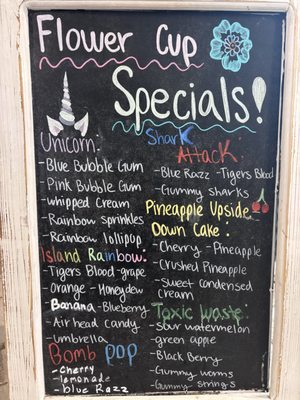 Flower Cup
Specials!
Unicorn:
-Blue Bubble Gum
-Pink Bubble Gum
-whipped Cream
-Rainbow sprinkles
-Rainbow lollipop
Island Rainbow:
-Tigers Blood-grape
-Orange -Honeydew
-Banana -Blueberry
-Air head candy
-Umbrella
Bomb pop
-cherry
-lemonade
-blue Razz
Shark
Attack:
-Blue Razz -Tigers Blood
-Gummy sharks
Pineapple Upside
Down Cake:
-Cherry -Pineapple
-Crushed Pineapple
-Sweet condensed
cream
Toxic waste:
-Sour watermelon
-green apple
-Black Berry
-Gummy worms
-Gummy strings